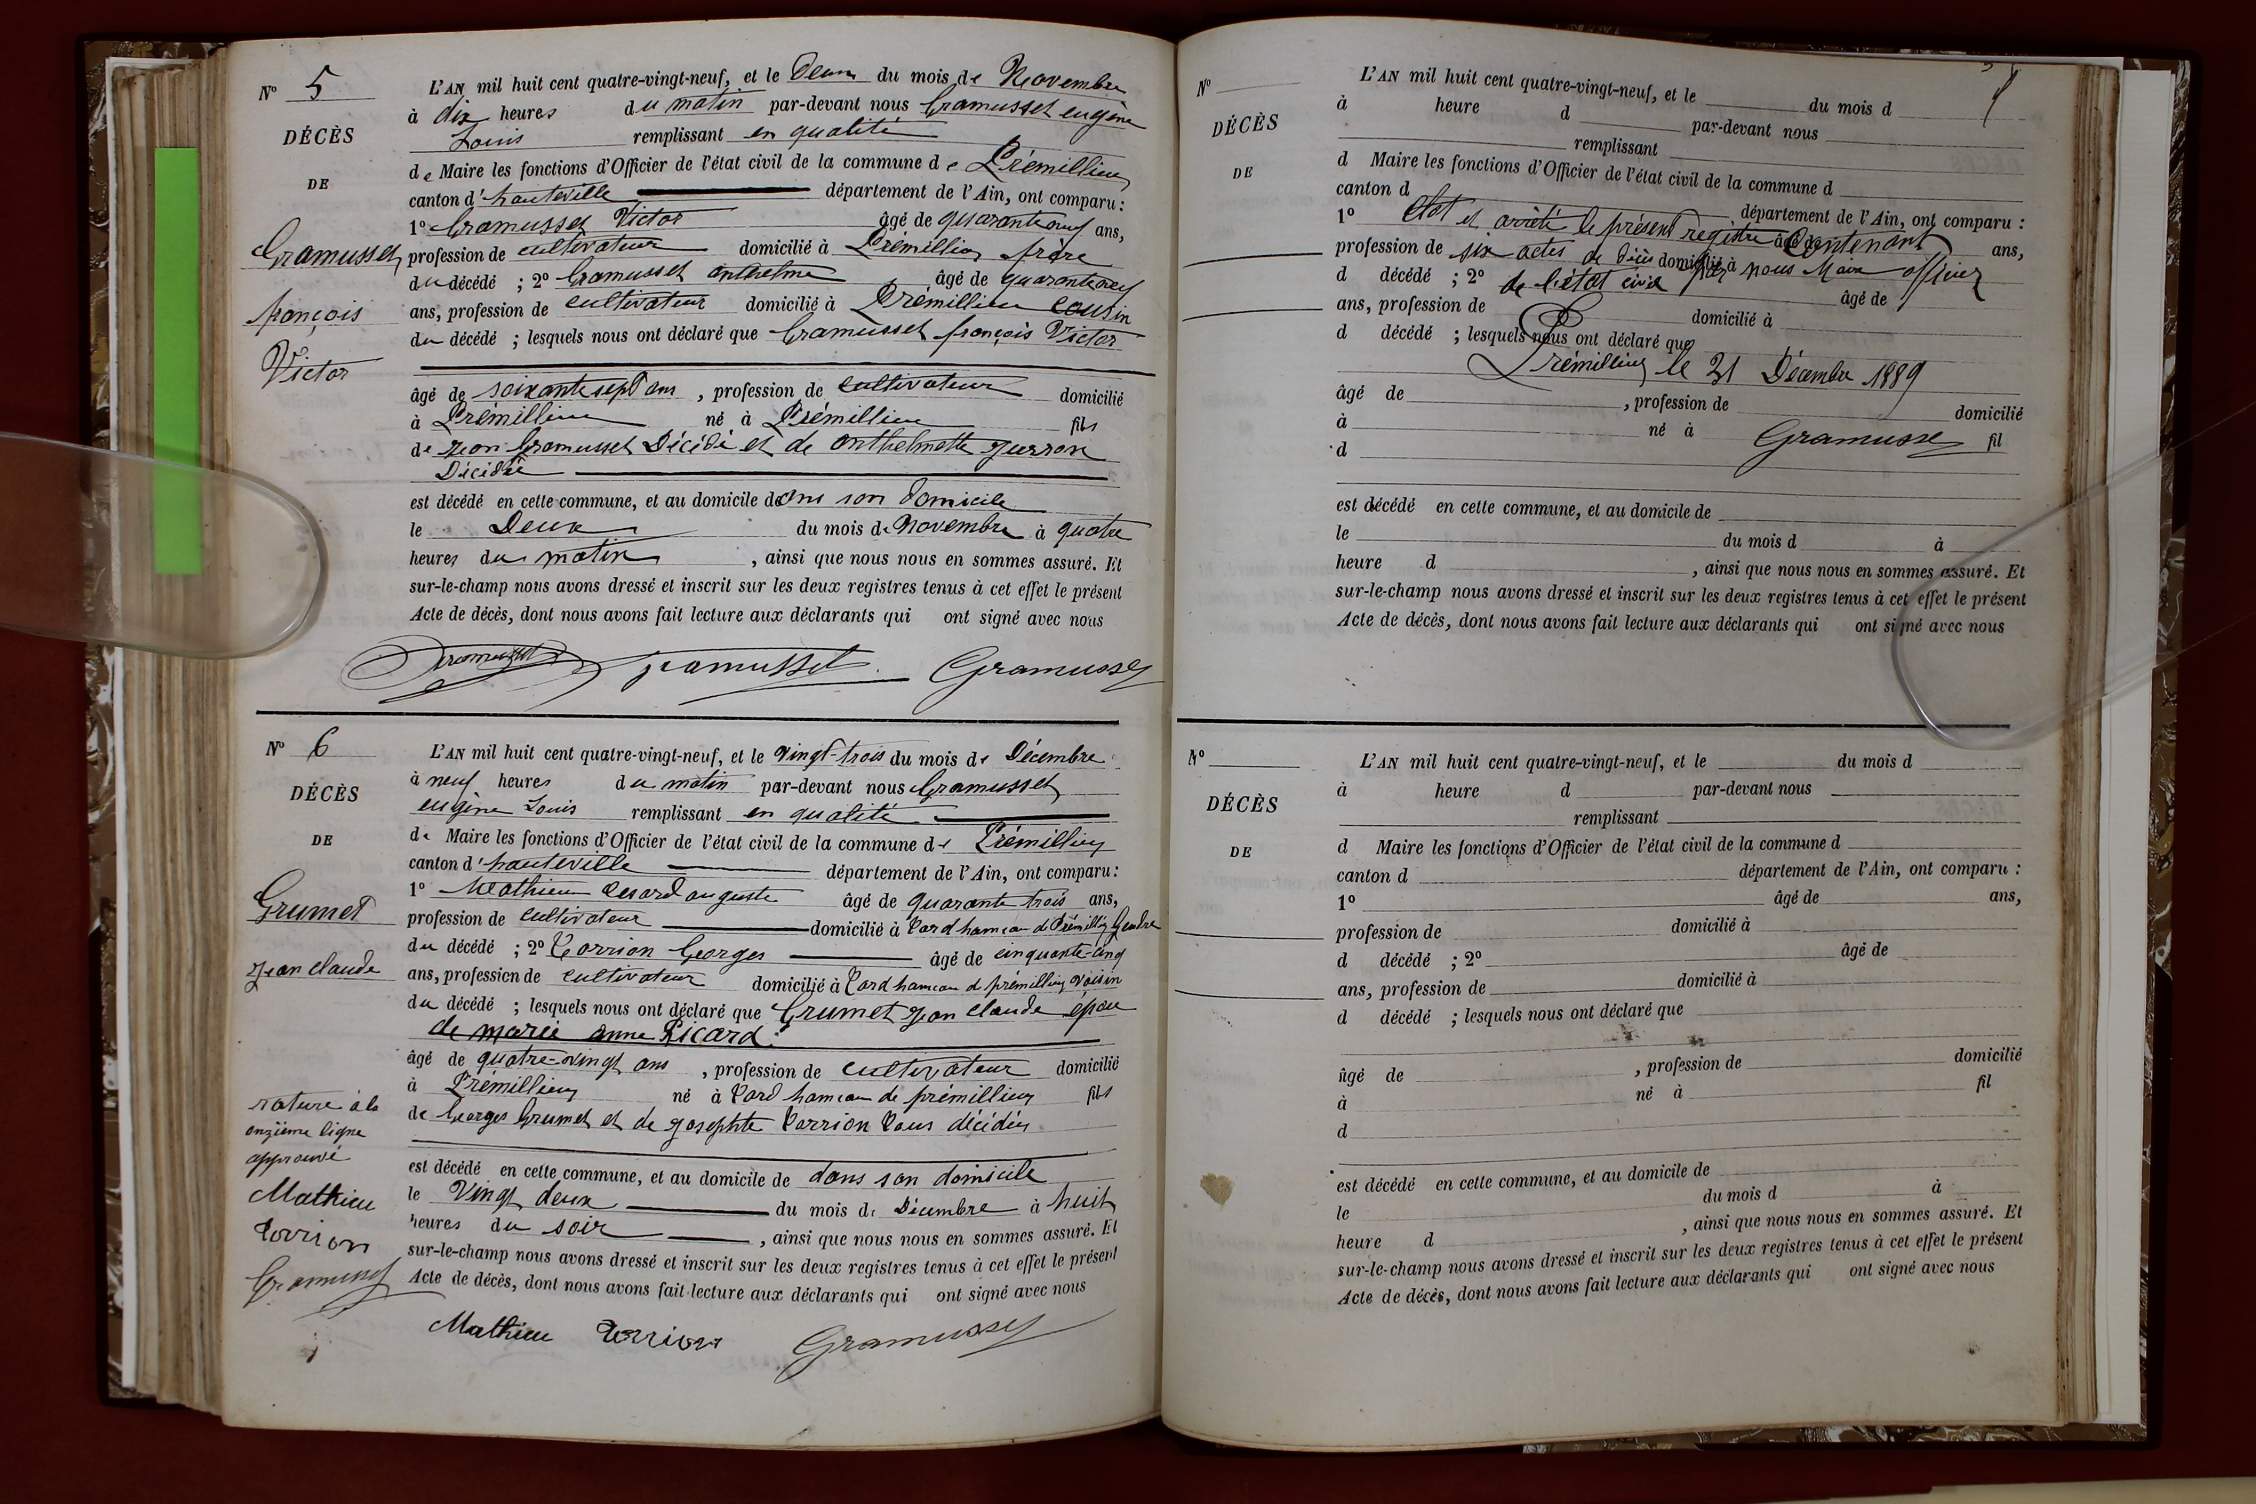 N° 5
DÉCÈS
DE
Gramusset
françois
Victor
L'AN mil huit cent quatre-vingt-neuf, et le Deux du mois de Novembre
à dix heures du matin par-devant nous Gramusset eugène
Louis remplissant en qualité
de Maire les fonctions d'Officier de l'état civil de la commune de Prémillieu
canton d'hauteville département de l'Ain, ont comparu :
1° Gramusset Victor âgé de quarante neuf ans,
profession de cultivateur domicilié à Prémillieu frère
du décédé ; 2° Gramusset anthelme âgé de quarante neuf
ans, profession de cultivateur domicilié à Prémillieu cousin
du décédé ; lesquels nous ont déclaré que Gramusset françois Victor
âgé de soixante sept ans , profession de cultivateur domicilié
à Prémillieu né à Prémillieu fils
de Jean Gramusset Décédé et de anthelmette Jurron
Décédée
est décédé en cette commune, et au domicile dans son domicile
le Deux du mois de Novembre à quatre
heures du matin , ainsi que nous nous en sommes assuré. Et
sur-le-champ nous avons dressé et inscrit sur les deux registres tenus à cet effet le présent
Acte de décès, dont nous avons fait lecture aux déclarants qui ont signé avec nous
Gramusset Gramusset Gramusset
N° 6
DÉCÈS
DE
Grumet
Jean claude
rature à la
onzième ligne
approuvé
Mathieu
Corrion
Gramusset
L'AN mil huit cent quatre-vingt-neuf, et le vingt-trois du mois de Décembre
à neuf heures du matin par-devant nous Gramusset
eugène Louis remplissant en qualité
de Maire les fonctions d'Officier de l'état civil de la commune de Prémillieu
canton d'hauteville département de l'Ain, ont comparu :
1° Mathieu Cesard auguste âgé de quarante trois ans,
profession de cultivateur domicilié à hameau de Prémillieu Gendre
du décédé ; 2° Corrion Georges âgé de cinquante-cinq
ans, profession de cultivateur domicilié à hameau de prémillieu voisin
du décédé ; lesquels nous ont déclaré que Grumet Jean claude époux
de marie anne Picard
âgé de quatre-vingt ans , profession de cultivateur domicilié
à Prémillieu né à hameau de prémillieu fils
de Georges Grumet et de josephte Corrion tous décédés
est décédé en cette commune, et au domicile de dans son domicile
le Vingt deux du mois de Décembre à huit
heures du soir , ainsi que nous nous en sommes assuré. Et
sur-le-champ nous avons dressé et inscrit sur les deux registres tenus à cet effet le présent
Acte de décès, dont nous avons fait lecture aux déclarants qui ont signé avec nous
Mathieu Corrion Gramusset
N°
DÉCÈS
DE
L'AN mil huit cent quatre-vingt-neuf, et le du mois d
à heure d par-devant nous
remplissant
d Maire les fonctions d'Officier de l'état civil de la commune d
canton d département de l'Ain, ont comparu :
1° Clot et arrêté le présent registre âgé de Contenant ans,
profession de six actes de décès domicilié à par nous Maire officier
d décédé ; 2° de l'état civil âgé de
ans, profession de domicilié à
d décédé ; lesquels nous ont déclaré que
Prémillieu le 31 Décembre 1889
âgé de , profession de domicilié
à né à Gramusset fil
d
est décédé en cette commune, et au domicile de
le du mois d à
heure d , ainsi que nous nous en sommes assuré. Et
sur-le-champ nous avons dressé et inscrit sur les deux registres tenus à cet effet le présent
Acte de décès, dont nous avons fait lecture aux déclarants qui ont signé avec nous
N°
DÉCÈS
DE
L'AN mil huit cent quatre-vingt-neuf, et le du mois d
à heure d par-devant nous
remplissant
d Maire les fonctions d'Officier de l'état civil de la commune d
canton d département de l'Ain, ont comparu :
1° âgé de ans,
profession de domicilié à
d décédé ; 2° âgé de
ans, profession de domicilié à
d décédé ; lesquels nous ont déclaré que
âgé de , profession de domicilié
à né à fil
d
est décédé en cette commune, et au domicile de
le du mois d à
heure d , ainsi que nous nous en sommes assuré. Et
sur-le-champ nous avons dressé et inscrit sur les deux registres tenus à cet effet le présent
Acte de décès, dont nous avons fait lecture aux déclarants qui ont signé avec nous